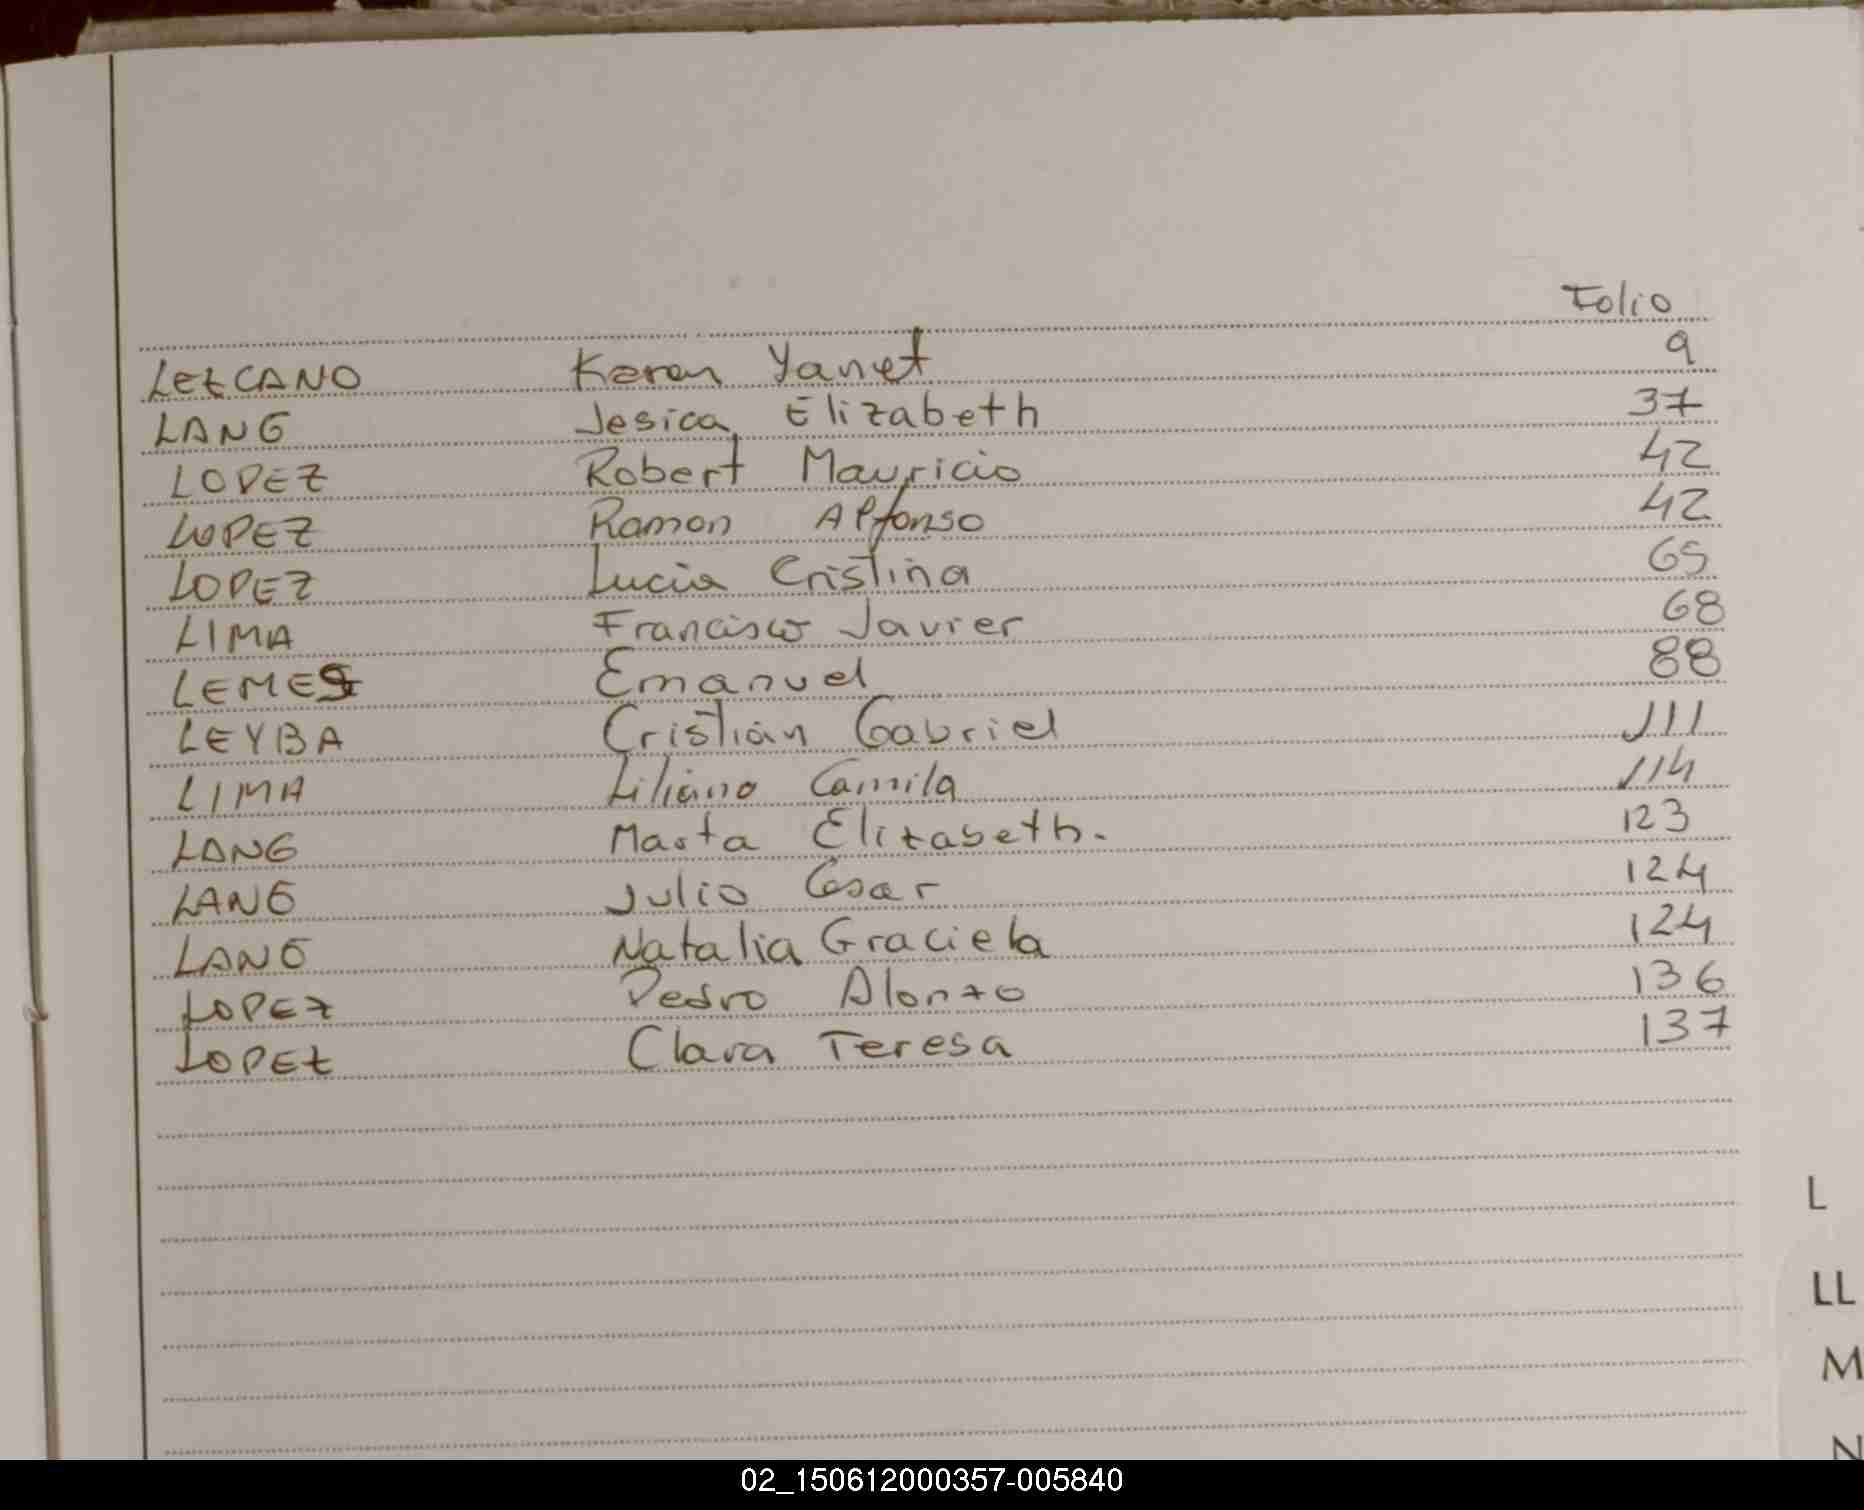 Folio
LEZCANO Karen Yanet 9
LANG Jesica Elizabeth 37
LOPEZ Robert Mauricio 42
LOPEZ Ramon Alfonso 42
LOPEZ Lucia Cristina 65
LIMA Francisco Javier 68
LEMES Emanuel 88
LEYBA Cristián Gabriel 111
LIMA Liliana Camila 114
LANG Marta Elizabeth. 123
LANG Julio Cesar 124
LANG Natalia Graciela 124
LOPEZ Pedro Alonzo 136
LOPEZ Clara Teresa 137
L
LL
M
N
02_150612000357-005840